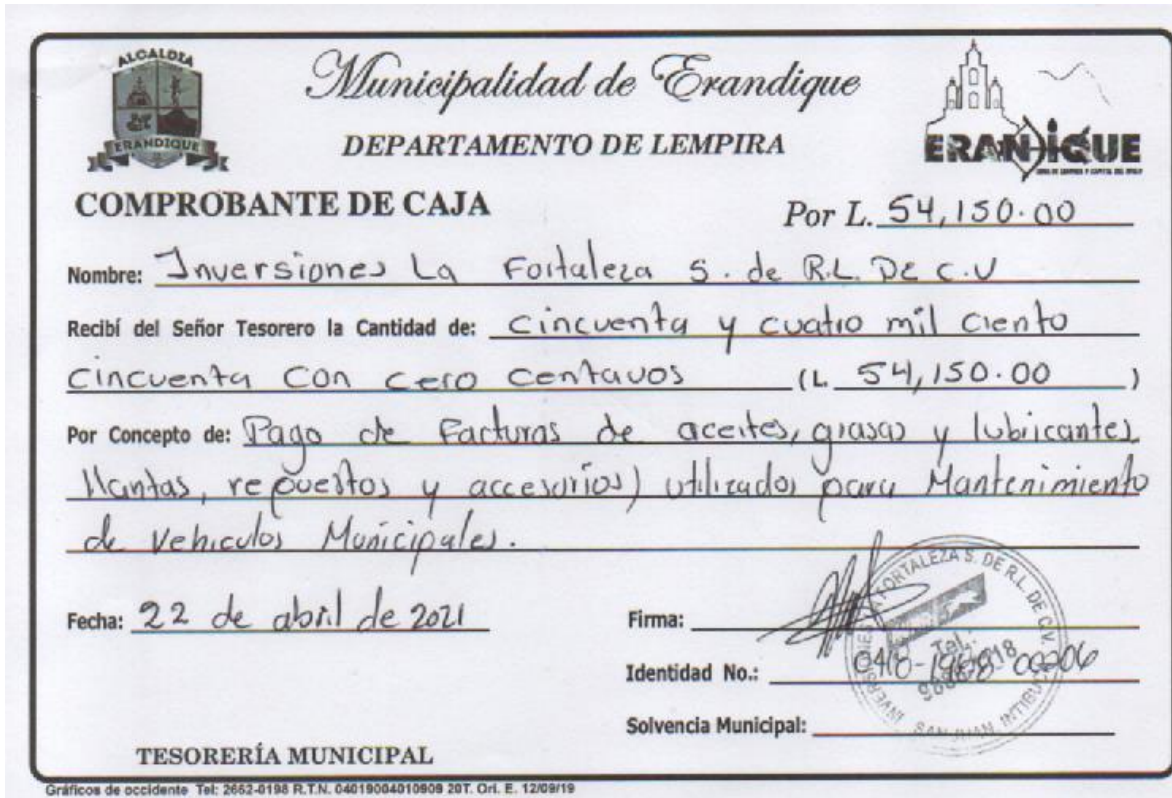 ALCALDIA
ERANDIQUE
Municipalidad de Erandique
DEPARTAMENTO DE LEMPIRA
ERANDIQUE
COMPROBANTE DE CAJA
Por L. 54,150.00
Nombre: Inversiones La Fortaleza S. de R.L. De C.V
Recibí del Señor Tesorero la Cantidad de: Cincuenta y cuatro mil ciento
cincuenta con cero centavos (L 54,150.00)
Por Concepto de: Pago de Facturas de aceites, grasas y lubricantes,
llantas, repuestos y accesorios) utilizados para Mantenimiento
de Vehiculos Municipales.
Fecha: 22 de abril de 2021
Firma:
Identidad No.:
Solvencia Municipal:
FORTALEZA S. DE R.L. DE C.V.
Tel.:
SAN JUAN, INTIBUCA
TESORERÍA MUNICIPAL
Gráficos de occidente Tel: 2662-0198 R.T.N. 04019004010909 20T. Ori. E. 12/09/19